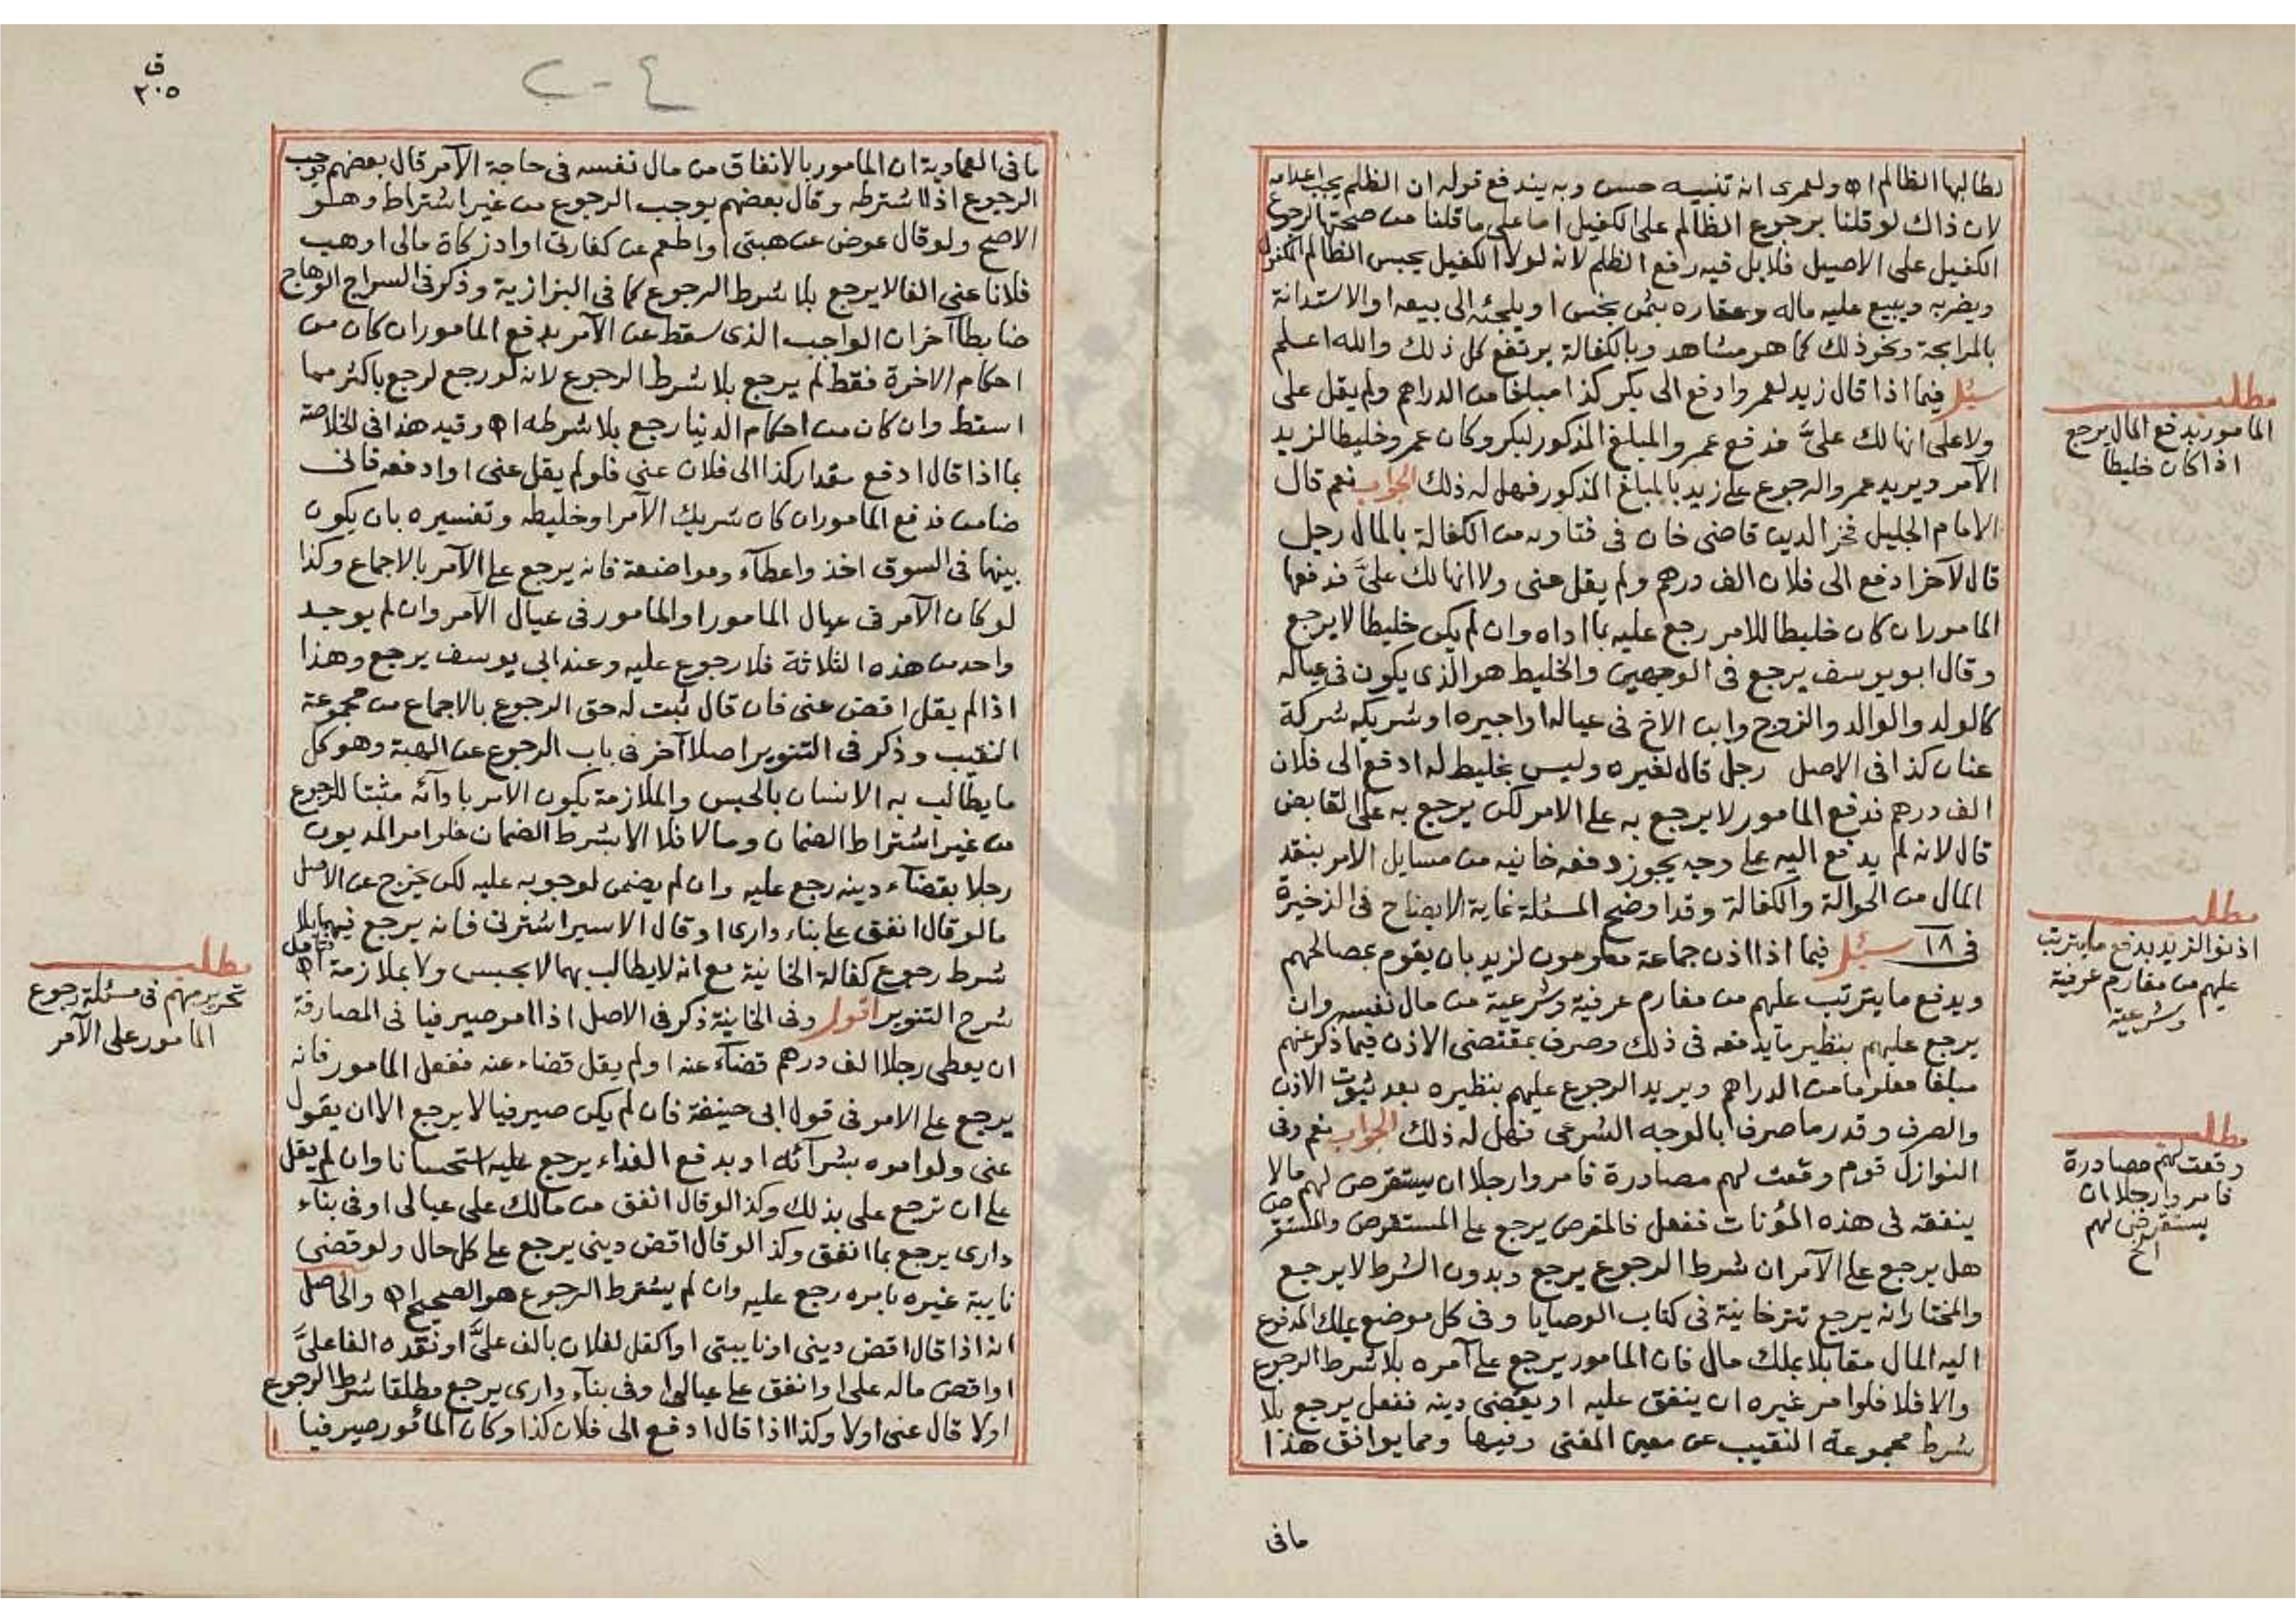 لطالبها الظالم اه ولعمرى انه تنبيه حسن وبه يندفع قوله ان الظلم يجب اعدامه
لان ذاك لو قلنا برجوع الظالم على الكفيل اما على ما قلنا من صحة الرجوع
الكفيل على الاصيل فلا بل فيه رفع الظلم لانه لولا الكفيل يحبس الظالم المكفول
ويضربه ويبيع عليه ماله وعقاره بثمن بخس او يلجئه الى بيعه او الاستدانة
بالمرابحة ونحو ذلك كما هو مشاهد وبالكفالة يرتفع كل ذلك والله اعلم
سئل فيما اذا قال زيد لعمرو ادفع الى بكر كذا مبلغا من الدراهم ولم يقل على
ولا على انها لك علىَّ فدفع عمرو المبلغ المذكور لبكر وكان عمرو خليطا لزيد
الآمر ويريد عمرو الرجوع على زيد بالمبلغ المذكور فهل له ذلك الجواب نعم قال
الامام الجليل فخر الدين قاضى خان فى فتاويه من الكفالة بالمال رجل
قال لآخر ادفع الى فلان الف درهم ولم يقل عنى ولا انها لك علىَّ فدفعها
المامور ان كان خليطا للامر رجع عليه بما اداه وان لم يكن خليطا لا يرجع
وقال ابو يوسف يرجع فى الوجهين والخليط هو الذى يكون فى عياله
كالولد والوالد والزوج وابن الاخ فى عياله او اجيره او شريكه شركة
عنان كذا فى الاصل رجل قال لغيره وليس بخليط له ادفع الى فلان
الف درهم فدفع المامور لا يرجع به على الامر لكن يرجع به على القابض
قال لانه لم يدفع اليه على وجه يجوز دفعه خانيه من مسايل الامر بنقد
المال من الحوالة والكفالة وقد اوضح المسئلة غاية الايضاح فى الذخيرة
فى ١٨ سئل فيما اذا اذن جماعة معلومون لزيد بان يقوم بمصالحهم
ويدفع ما يترتب عليهم من مغارم عرفية وشرعية من مال نفسه وان
يرجع عليهم بنظير ما يدفعه فى ذلك وصرف بمقتضى الاذن فيما ذكر عنهم
مبلغا معلوما من الدراهم ويريد الرجوع عليهم بنظيره بعد ثبوت الاذن
والصرف وقدر ما صرف بالوجه الشرعى فهل له ذلك الجواب نعم وفى
النوازل قوم وقعت لهم مصادرة فامروا رجلا ان يستقرض لهم مالا
ينفقه فى هذه المؤنات ففعل فالمقرض يرجع على المستقرض والمستقرض
هل يرجع على الآمر ان شرط الرجوع يرجع وبدون الشرط لا يرجع
والمختار انه يرجع تترخانية فى كتاب الوصايا وفى كل موضع يملك المدفوع
اليه المال مقابلا بملك مال فان المامور يرجع على آمره بلا شرط الرجوع
والا فلا فلو امر غيره ان ينفق عليه او يقضى دينه ففعل يرجع بلا
شرط مجموعة النقيب عن معين المفتى وفيها ومما يوافق هذا
ما فى
مطلب
المامور بدفع المال يرجع
اذا كان خليطا
مطلب
اذنوا لزيد بدفع ما يترتب
عليهم من مغارم عرفية
وشرعية
مطلب
وقعت لهم مصادرة
فامروا رجلا ان
يستقرض لهم
الخ
ق
٢٠٥
ما فى العمادية ان المامور بالانفاق من مال نفسه فى حاجة الآمر قال بعضهم يوجب
الرجوع اذا اشترطه وقال بعضهم يوجب الرجوع من غير اشتراط وهو
الاصح ولو قال عوض عن هبتى او اطعم عن كفارتى او ادّ زكاة مالى او هب
فلانا عنى الفا لا يرجع بلا شرط الرجوع كما فى البزازية وذكر فى السراج الوهاج
ضابطا آخر ان الواجب الذى سقط عن الآمر بدفع المامور ان كان من
احكام الاخرة فقط لم يرجع بلا شرط الرجوع لانه لو رجع لرجع باكثر مما
اسقط وان كان من احكام الدنيا رجع بلا شرطه اه وقيد هذا فى الخلاصة
بما اذا قال ادفع مقدار كذا الى فلان عنى فلو لم يقل عنى او ادفعه فانى
ضامن فدفع المامور ان كان شريك الآمر او خليطه وتفسيره بان يكون
بينهما فى السوق اخذ واعطآء ومواضعة فانه يرجع على الآمر بالاجماع وكذا
لو كان الآمر فى عيال المامور او المامور فى عيال الآمر وان لم يوجد
واحد من هذه الثلاثة فلا رجوع عليه وعند ابى يوسف يرجع وهذا
اذا لم يقل اقض عنى فان قال ثبت له حق الرجوع بالاجماع من مجموعة
النقيب وذكر فى التنوير اصلا آخر فى باب الرجوع عن الهبة وهو كل
ما يطالب به الانسان بالحبس والملازمة يكون الامر بادآئه مثبتا للرجوع
من غير اشتراط الضمان وما لا فلا الا بشرط الضمان فلو امر المديون
رجلا بقضآء دينه رجع عليه وان لم يضمن لوجوبه عليه لكن يخرج عن الاصل
ما لو قال انفق على بناء دارى او قال الاسير اشترنى فانه يرجع فيهما بلا
شرط رجوع كفالة الخانية مع انه لا يطالب بهما لا بحبس ولا بملازمة فتامل اه
شرح التنوير اقول وفى الخانية ذكر فى الاصل اذا امر صيرفيا فى المصارفة
ان يعطى رجلا الف درهم قضآء عنه او لم يقل قضاء عنه ففعل المامور فانه
يرجع على الامر فى قول ابى حنيفة فان لم يكن صيرفيا لا يرجع الا ان يقول
عنى ولو امره بشرآئه او بدفع الفداء يرجع عليه استحسانا وان لم يقل
على ان ترجع على بذلك وكذا لو قال انفق من مالك على عيالى او فى بنآء
دارى يرجع بما انفق وكذا لو قال اقض دينى يرجع على كل حال ولو قضى
نايبة غيره بامره رجع عليه وان لم يشترط الرجوع هو الصحيح اه والحاصل
انه اذا قال اقض دينى او نايبتى او اكفل لفلان بالف علىَّ او نقده الفا علىَّ
او اقض ماله على او انفق على عيالى او فى بنآء دارى يرجع مطلقا شرط الرجوع
اولا قال عنى اولا وكذا اذا قال ادفع الى فلان كذا وكان المأمور صيرفيا
مطلب
تحرير مهم فى مسئلة رجوع
المامور على الآمر